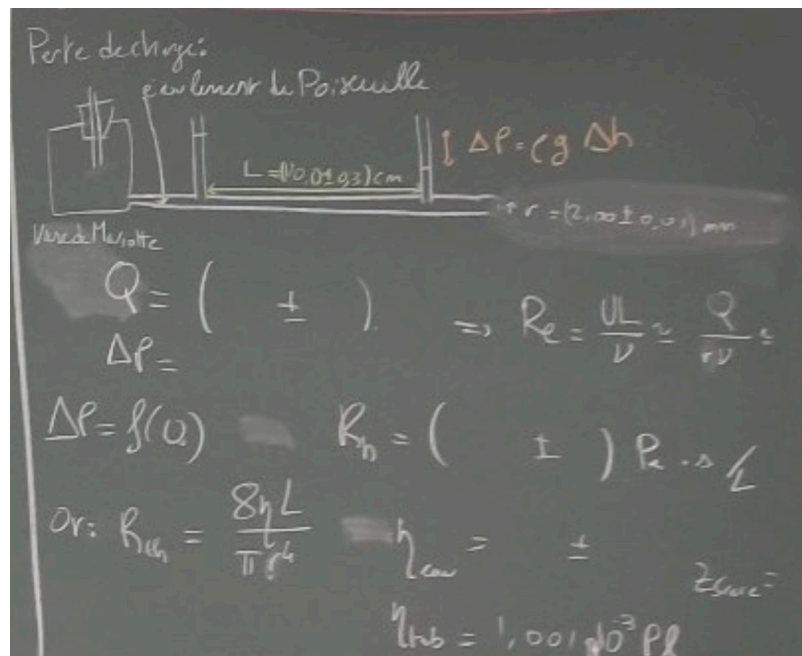 Perte de charge:
écoulement de Poiseuille
L = (10,0 ± 0,3) cm
ΔP = ρg Δh
r = (2,00 ± 0,01) mm
Vase de Mariotte
Q = (    ±    )
⇒ Re = UL/ν ≃ Q/rν ≃
ΔP =
ΔP = f(Q)
Rh = (    ±    ) Pa.s/L
Or: Rth = 8ηL/πr⁴
ηeau =    ±
Zscore =
ηtab = 1,001.10⁻³ Pl